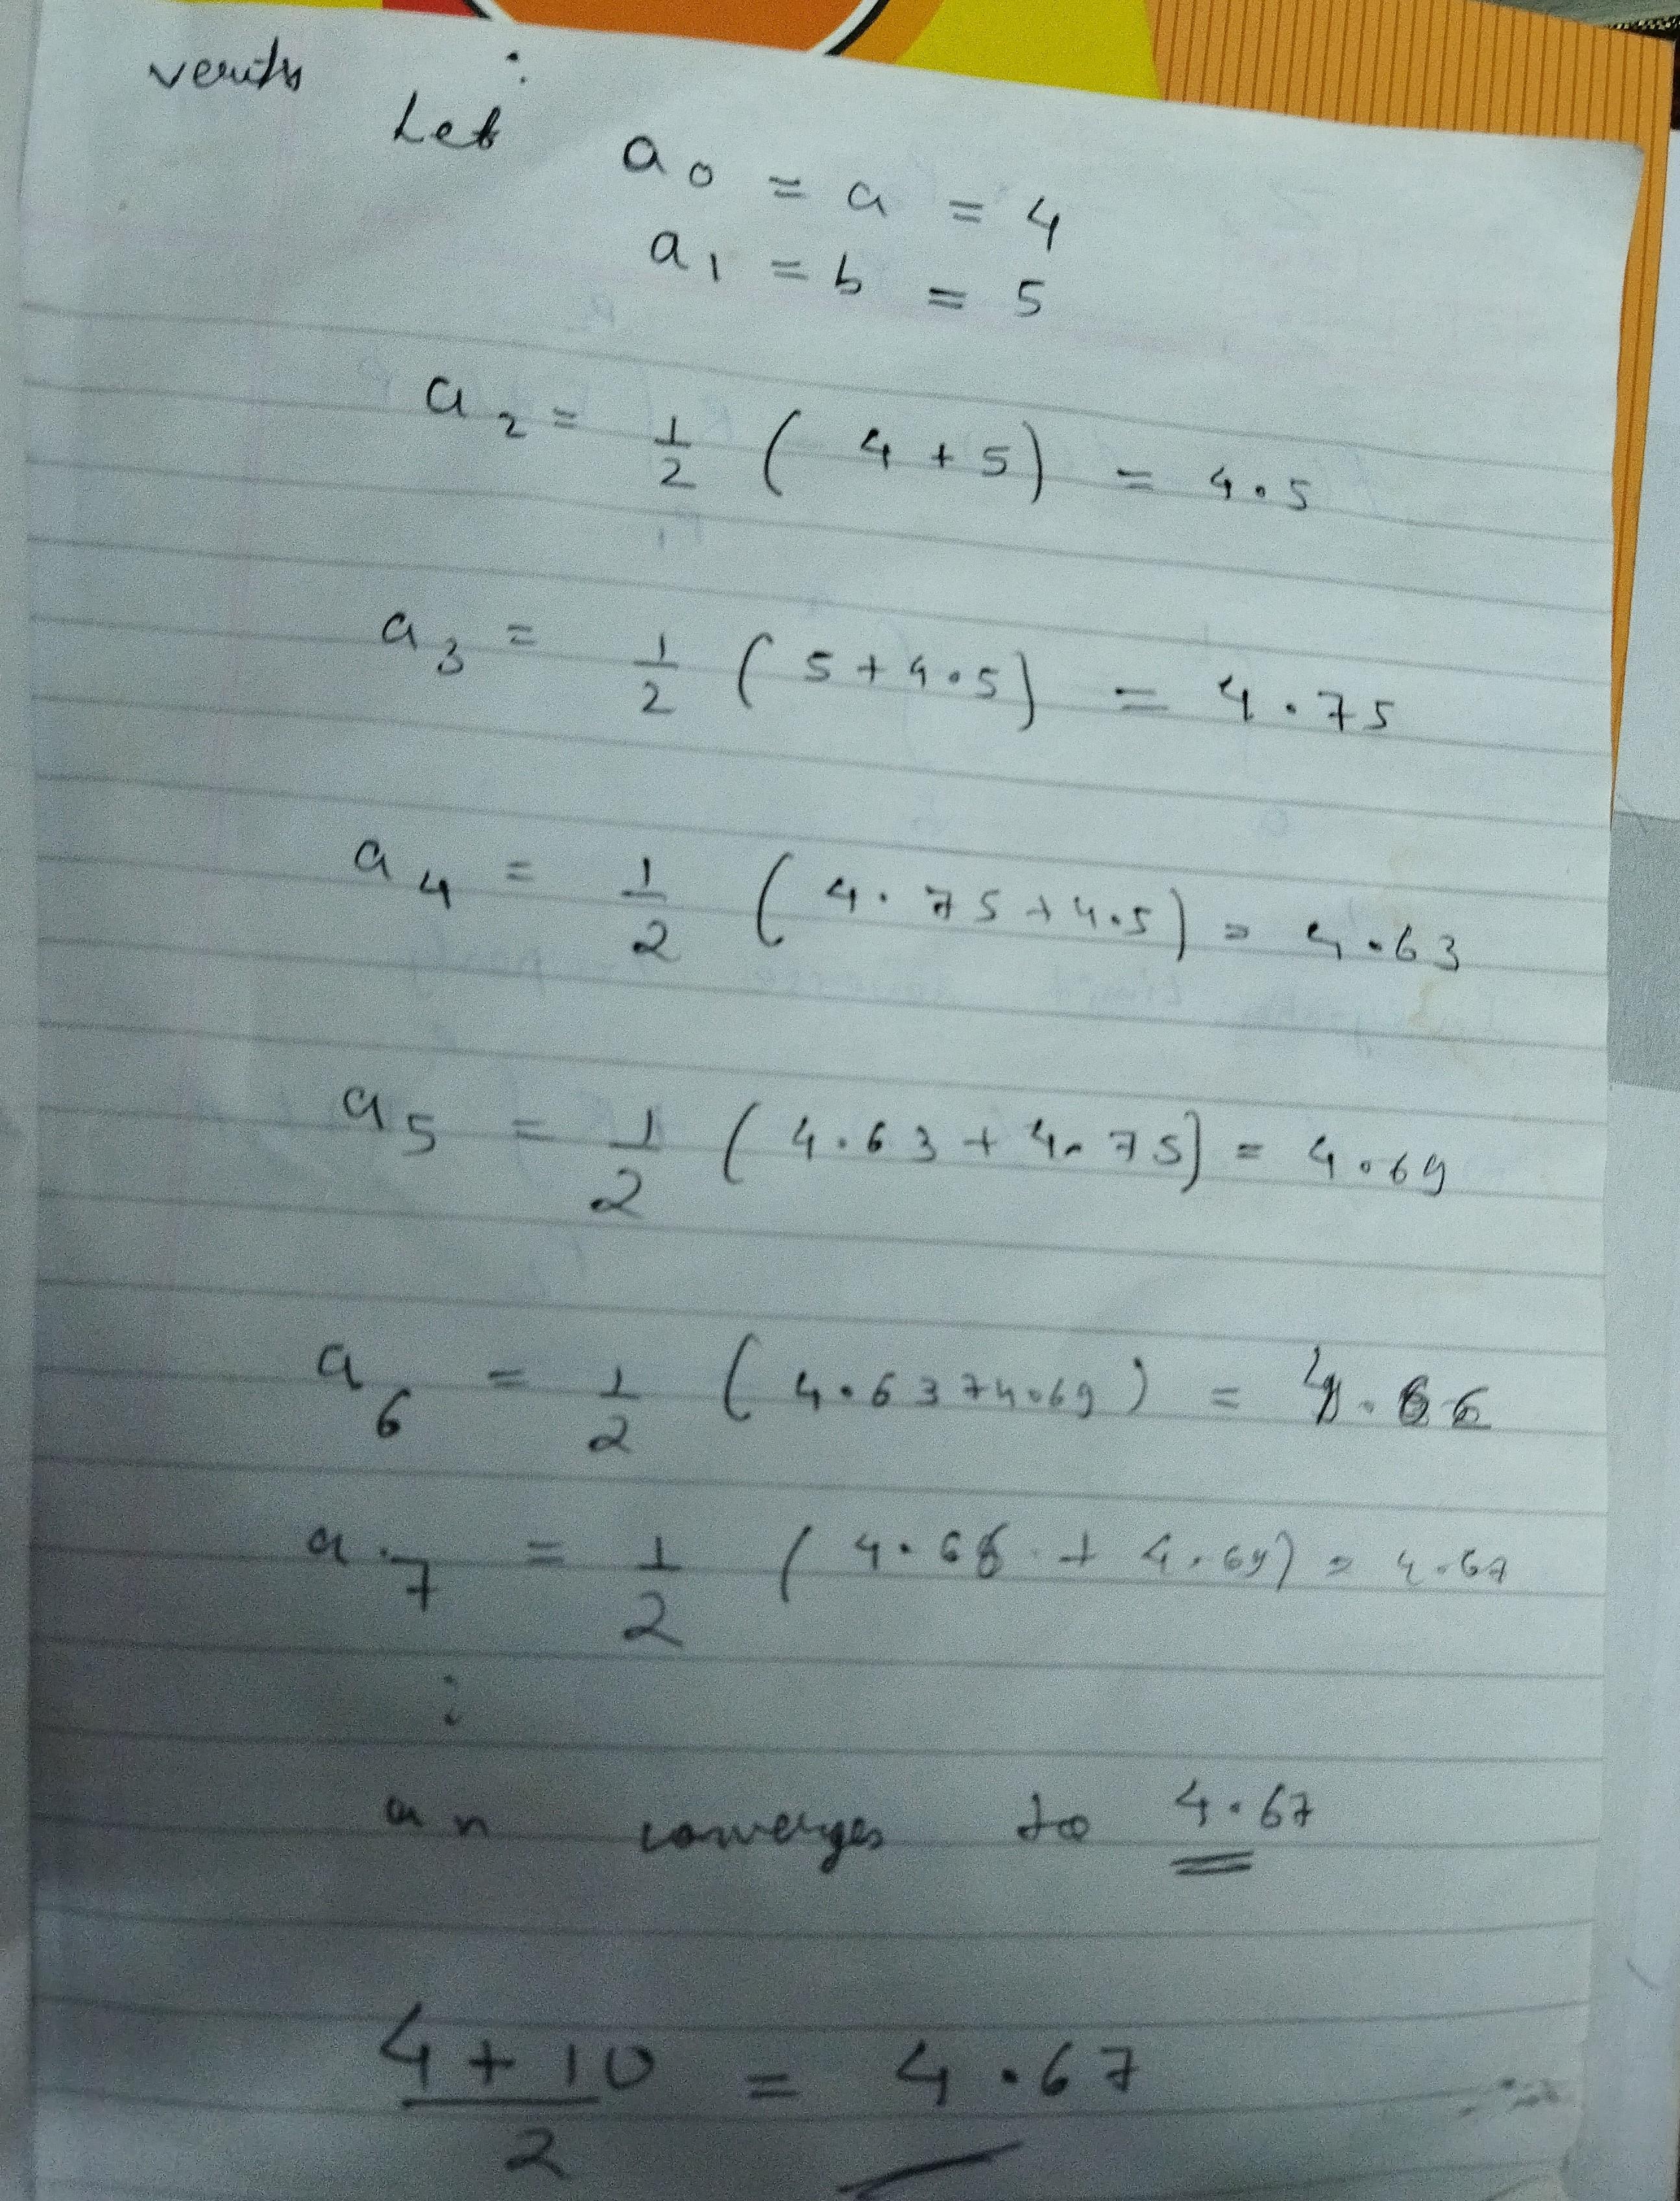 verify :
Let a0 = a = 4
a1 = b = 5
a2 = 1/2 ( 4 + 5 ) = 4.5
a3 = 1/2 ( 5 + 4.5 ) = 4.75
a4 = 1/2 ( 4.75 + 4.5 ) = 4.63
a5 = 1/2 ( 4.63 + 4.75 ) = 4.69
a6 = 1/2 ( 4.63 + 4.69 ) = 4.66
a7 = 1/2 ( 4.66 + 4.69 ) = 4.67
:
an converges to 4.67
4 + 10 / 2 = 4.67